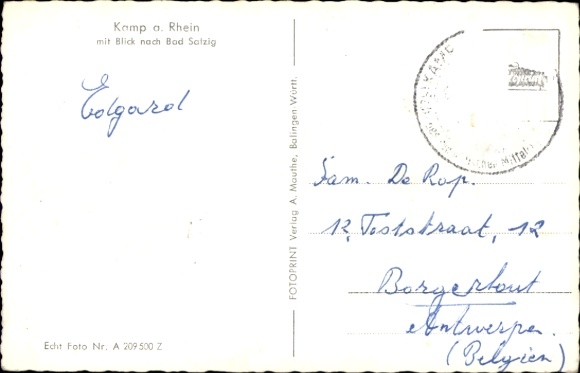 Kamp a. Rhein
mit Blick nach Bad Salzig
Edgard
Echt Foto Nr. A 209 500 Z
FOTOPRINT Verlag A. Mauthe, Balingen-Württ.
Fam. De Rop.
12, Teststraat, 12
Borgerhout
Antwerpen.
(Belgien)